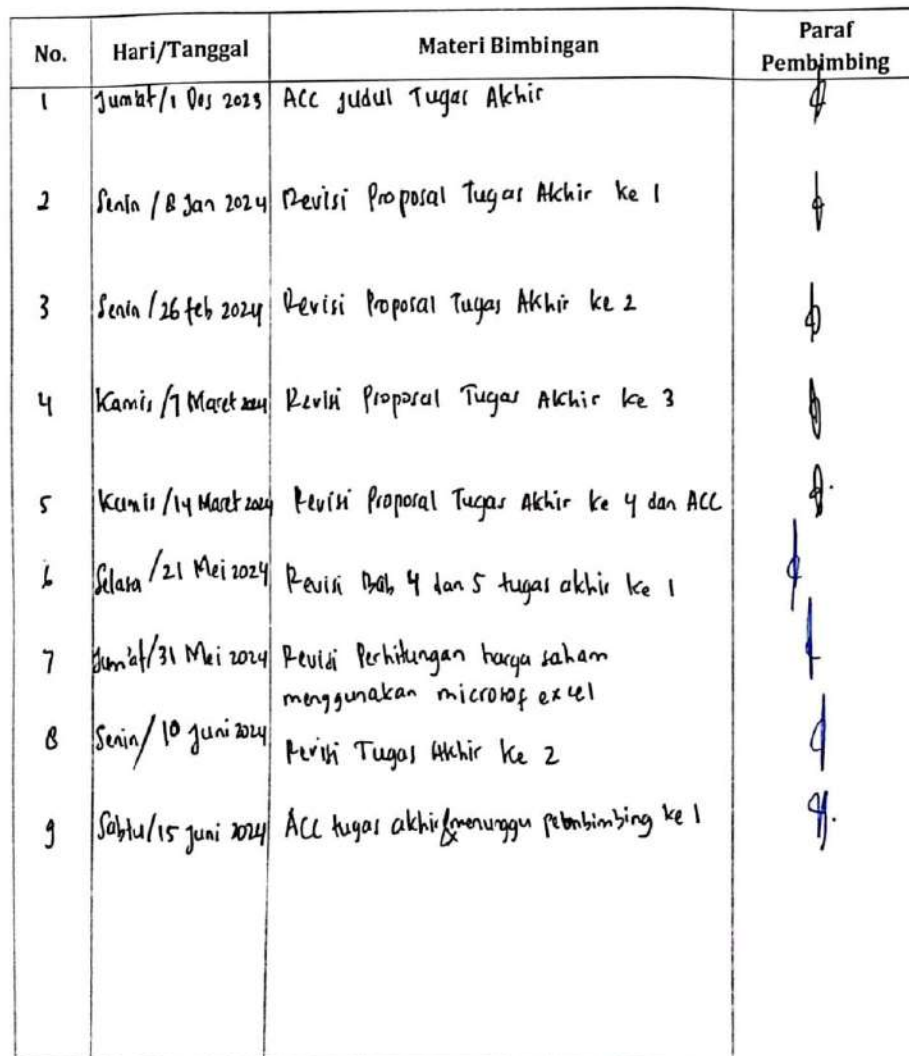 No. Hari/Tanggal Materi Bimbingan Paraf Pembimbing
1 Jum'at/1 Des 2023 ACC Judul Tugas Akhir
2 Senin / 8 Jan 2024 Revisi Proposal Tugas Akhir ke 1
3 Senin / 26 feb 2024 Revisi Proposal Tugas Akhir ke 2
4 Kamis /7 Maret 2024 Revisi Proposal Tugas Akhir ke 3
5 Kamis /14 Maret 2024 Revisi Proposal Tugas Akhir ke 4 dan ACC
6 Selasa /21 Mei 2024 Revisi Bab 4 dan 5 tugas akhir ke 1
7 Jum'at/31 Mei 2024 Revisi Perhitungan harga saham
menggunakan microsof excel
8 Senin/ 10 Juni 2024 Revisi Tugas Akhir ke 2
9 Sabtu/15 Juni 2024 ACC tugas akhir & menunggu pembimbing ke 1